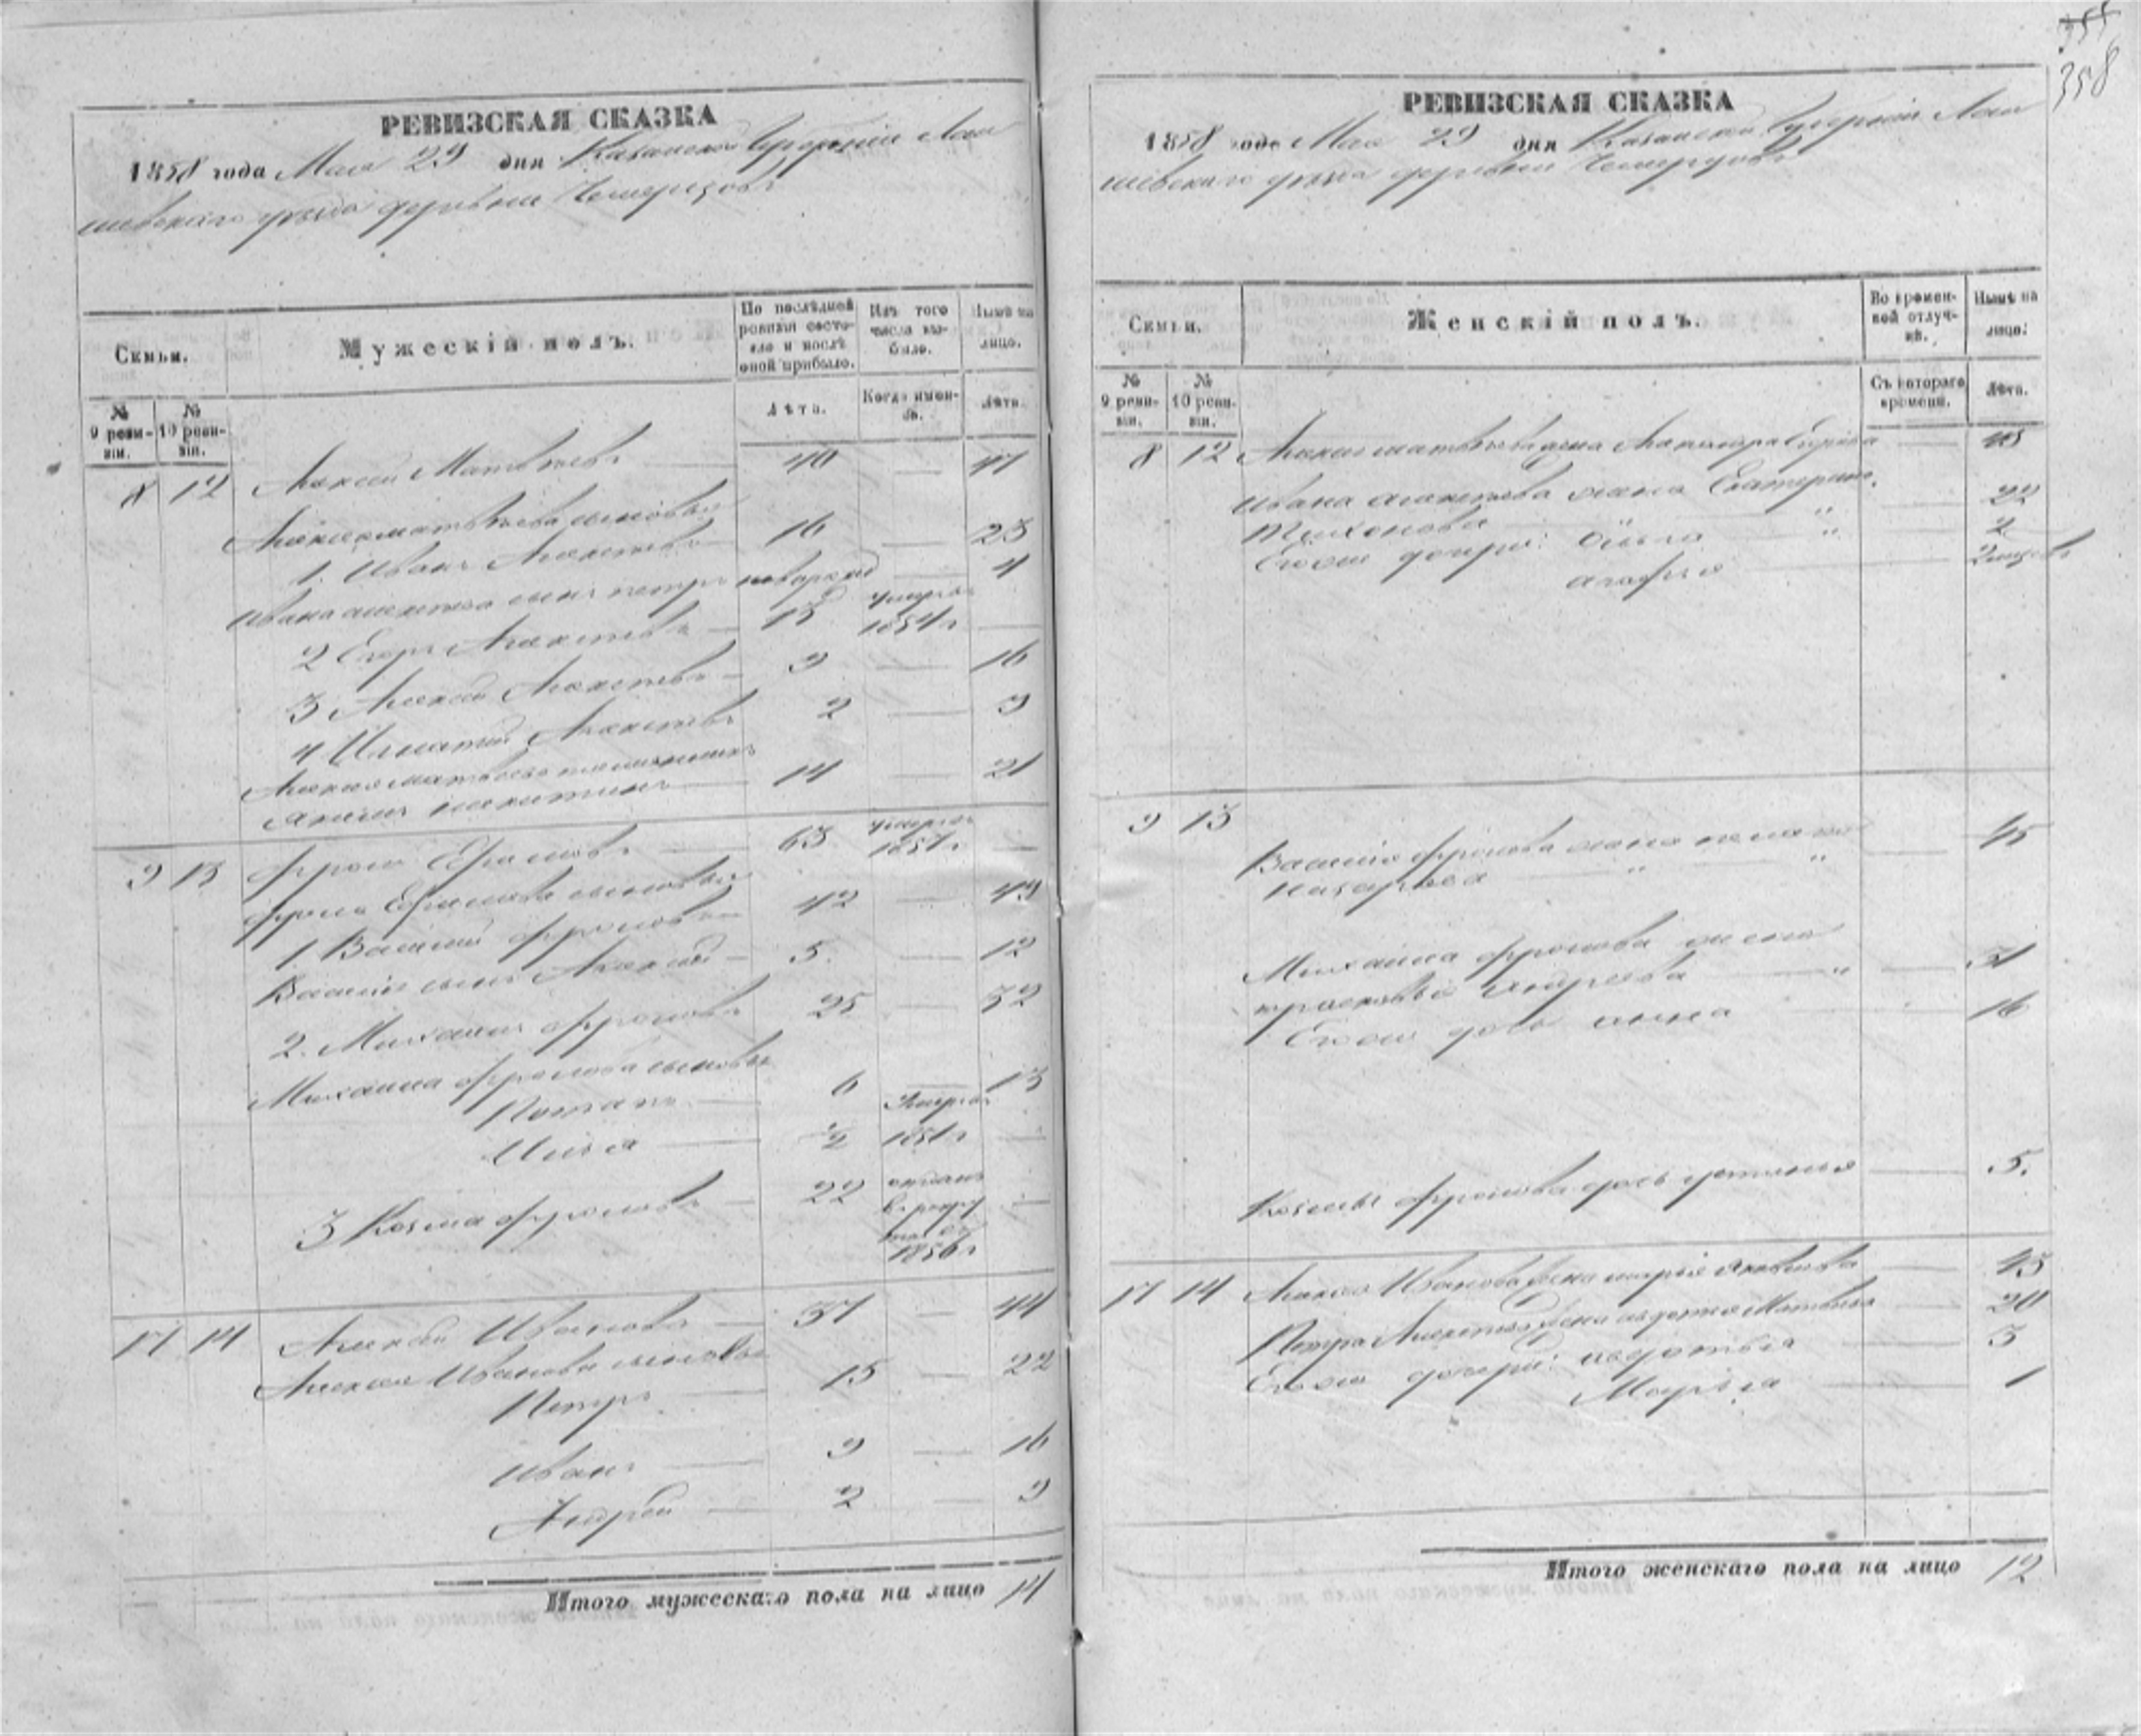 355
358
РЕВИЗСКАЯ СКАЗКА
1858 года Мая 29 дня Казанской Губерніи Лаи
шевскаго уѣзда деревни
Семьи.
Мужескій полъ.
По послѣдней ревизіи состояло и послѣ оной прибыло.
Изъ того числа выбыло.
Нынѣ на лицо.
№ 9 ревизіи.
№ 10 ревизіи.
Лѣта.
Когда именно.
Лѣта.
8 12 Алексей Матвѣевъ 40 — 47
Алексея Матвѣева сыновья
1. Иванъ Алексѣевъ 16 — 23
Ивана Алексѣева сынъ Петръ — 4
2 Егоръ Алексѣевъ 13 умеръ 1854 г —
3 Алексей Алексѣевъ 9 — 16
4 Игнатий Алексѣевъ 2 — 9
Алексея Матвѣева племянникъ
никитинъ 14 — 21
9 13 Фролъ Ефимовъ 63 умеръ 1857 г. —
Фрола Ефимова сыновья
1. Василий Фроловъ 42 — 49
Василія сынъ Алексей 5. — 12
2. Михаила Фроловъ 25 — 32
Михаила Фролова сыновья
Романъ 6 — 13
Илья 1/2 умеръ 1851 г —
3 Козма Фроловъ 22 отданъ в рекруты въ 1856 г —
17 14 Алексей Ивановъ 37 — 44
Алексея Иванова сыновья
Петръ 15 — 22
Иванъ 9 — 16
Андрей 2 — 9
Итого мужескаго пола на лицо 14
РЕВИЗСКАЯ СКАЗКА
1858 года Мая 29 дня Казанской Губерніи Лаи
шевскаго уѣзда деревни
Семьи.
Женскій полъ.
Во временной отлучкѣ.
Нынѣ на лицо.
№ 9 ревизіи.
№ 10 ревизіи.
Съ котораго времени.
Лѣта.
8 12 Алексея Матвѣева жена —
Ивана Алексѣева жена Екатерина — 22
Тихонова " "
Егож дочери: — 2
Агафья — 2 месяцъ
9 13
Василія Фролова жена — 45
Назарьева " "
Михаила Фролова жена
прасковья Андреева " — 31
Егож дочь анна 16
Козмы Фролова дочь устинья — 5.
17 14 Алексея Иванова жена марья Яковлева — 45
Петра Алексѣева жена авдотья Матвѣева — 20
Егож дочери: авдотья — 3
Марья — 1
Итого женскаго пола на лицо 12